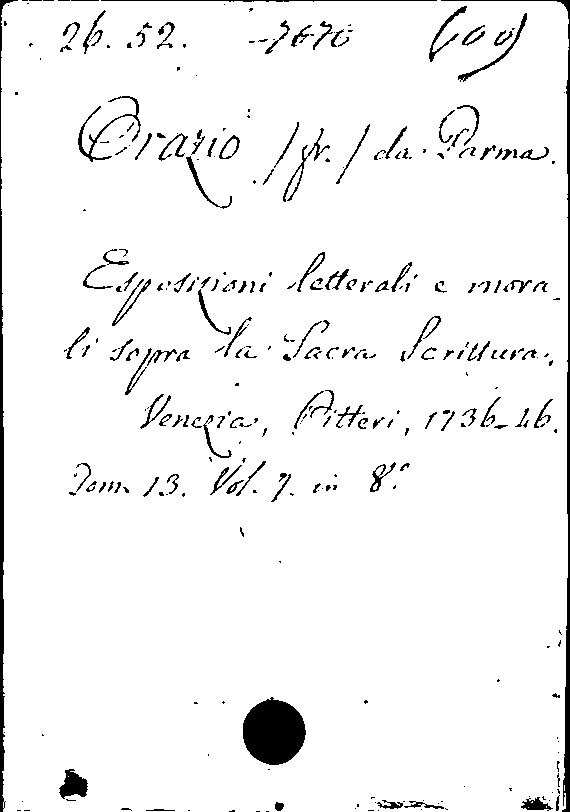 26. 52. -7670 (00)
Orazio /fr./ da Parma.
Esposizioni letterali e mora_
li sopra la Sacra Scrittura.
Venezia, Pitteri, 1736-46.
Tom. 13. Vol. 7. in 8.º